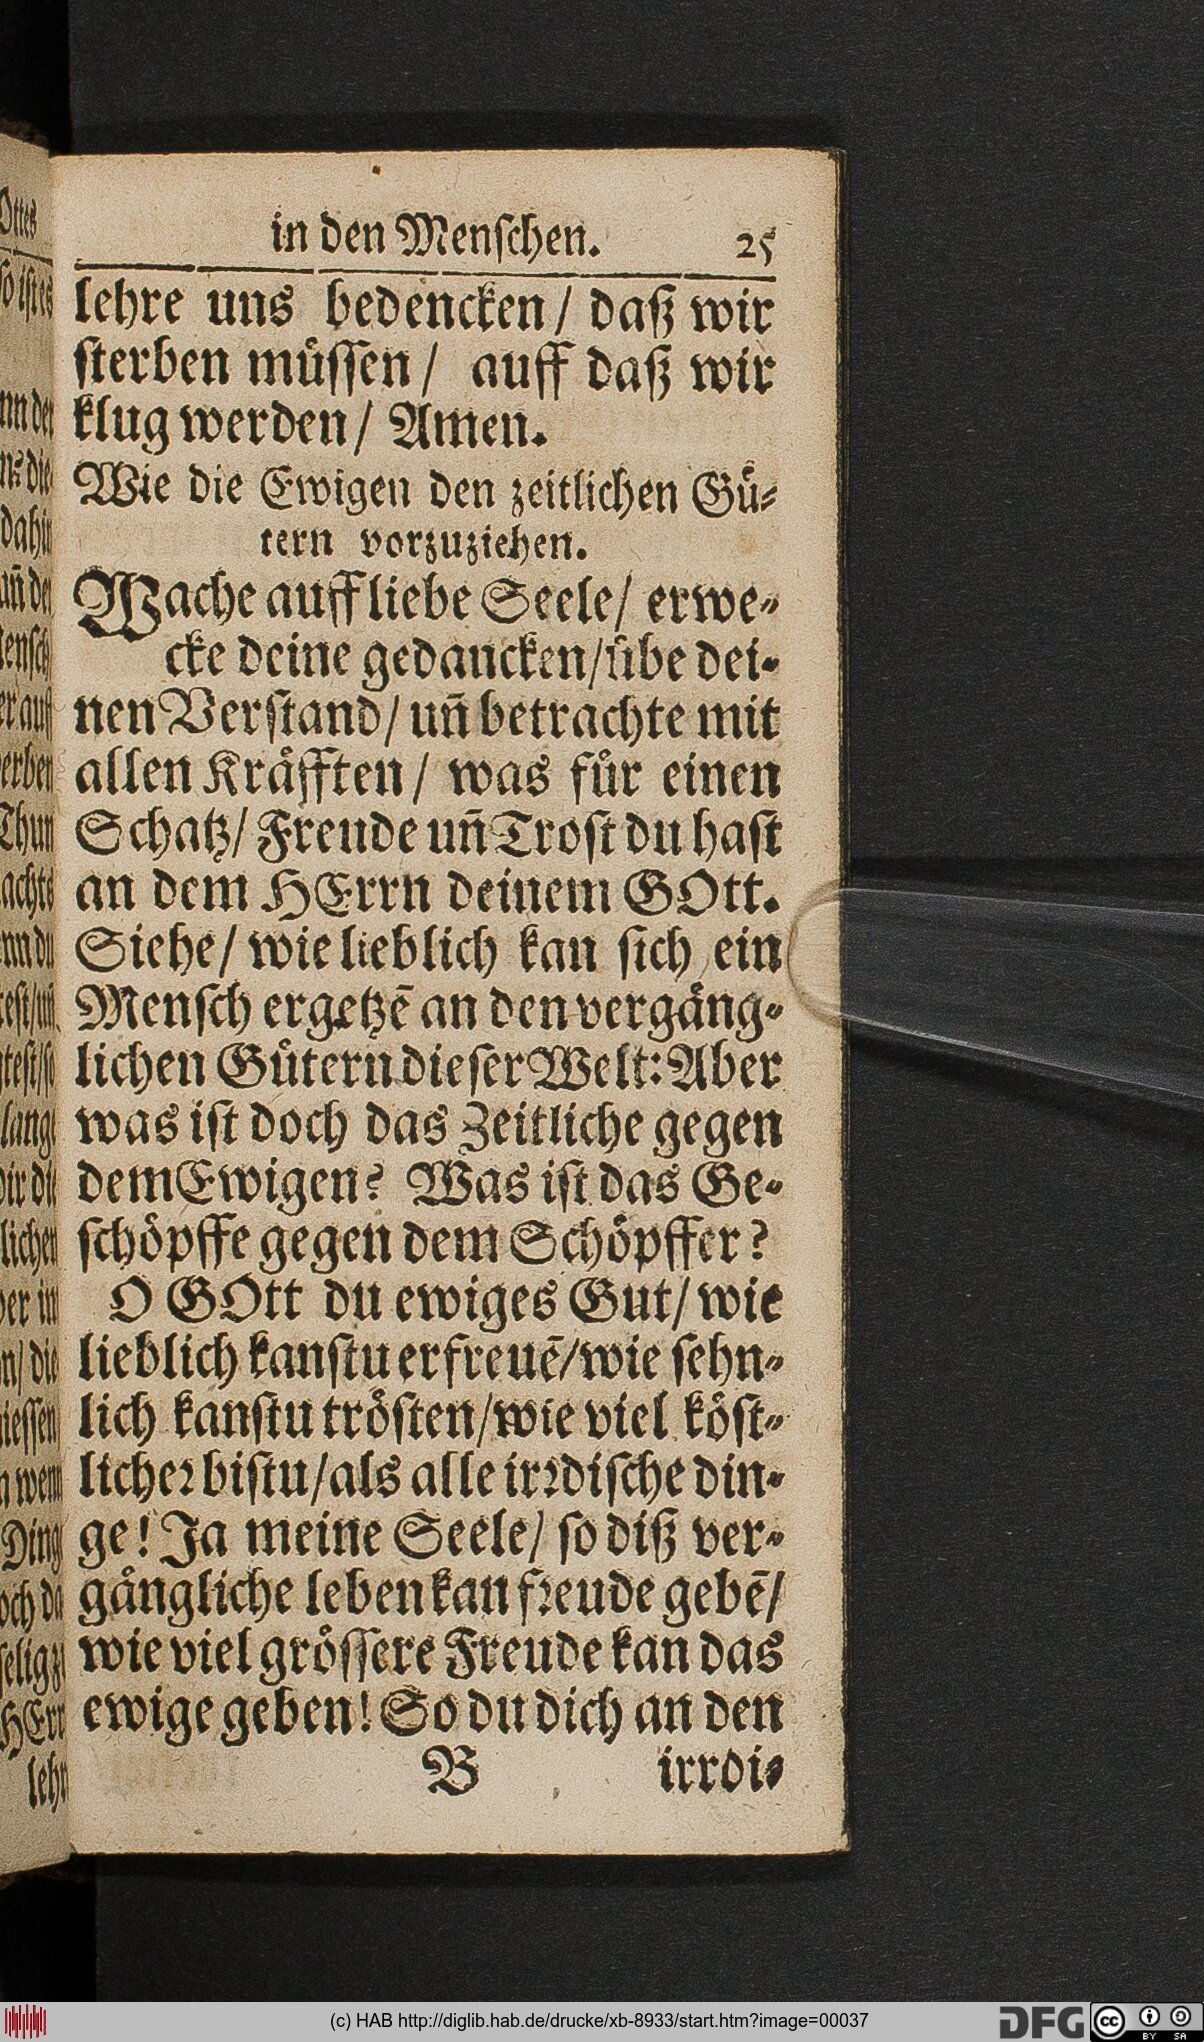 in den Menſchen. 25
lehre uns bedencken/ daß wir
ſterben müſſen/ auff daß wir
klug werden/ Amen.
Wie die Ewigen den zeitlichen Gü-
tern vorzuziehen.
Wache auff liebe Seele/ erwe-
cke deine gedancken/ übe dei-
nen Verſtand/ uñ betrachte mit
allen Kräfften/ was für einen
Schatz/ Freude uñ Troſt du haſt
an dem HErrn deinem GOtt.
Siehe/ wie lieblich kan ſich ein
Menſch ergetzē an den vergäng-
lichen Gütern dieſer Welt: Aber
was iſt doch das Zeitliche gegen
dem Ewigen? Was iſt das Ge-
ſchöpffe gegen dem Schöpffer?
O GOtt du ewiges Gut/ wie
lieblich kanſtu erfreuē/ wie ſehn-
lich kanſtu tröſten/ wie viel köſt-
licheꝛ biſtu/ als alle irꝛdiſche din-
ge! Ja meine Seele/ ſo diß ver-
gängliche leben kan fꝛeude gebē/
wie viel gröſſere Freude kan das
ewige geben! So du dich an den
B irrdi-
(c) HAB http://diglib.hab.de/drucke/xb-8933/start.htm?image=00037
DFG cc BY SA